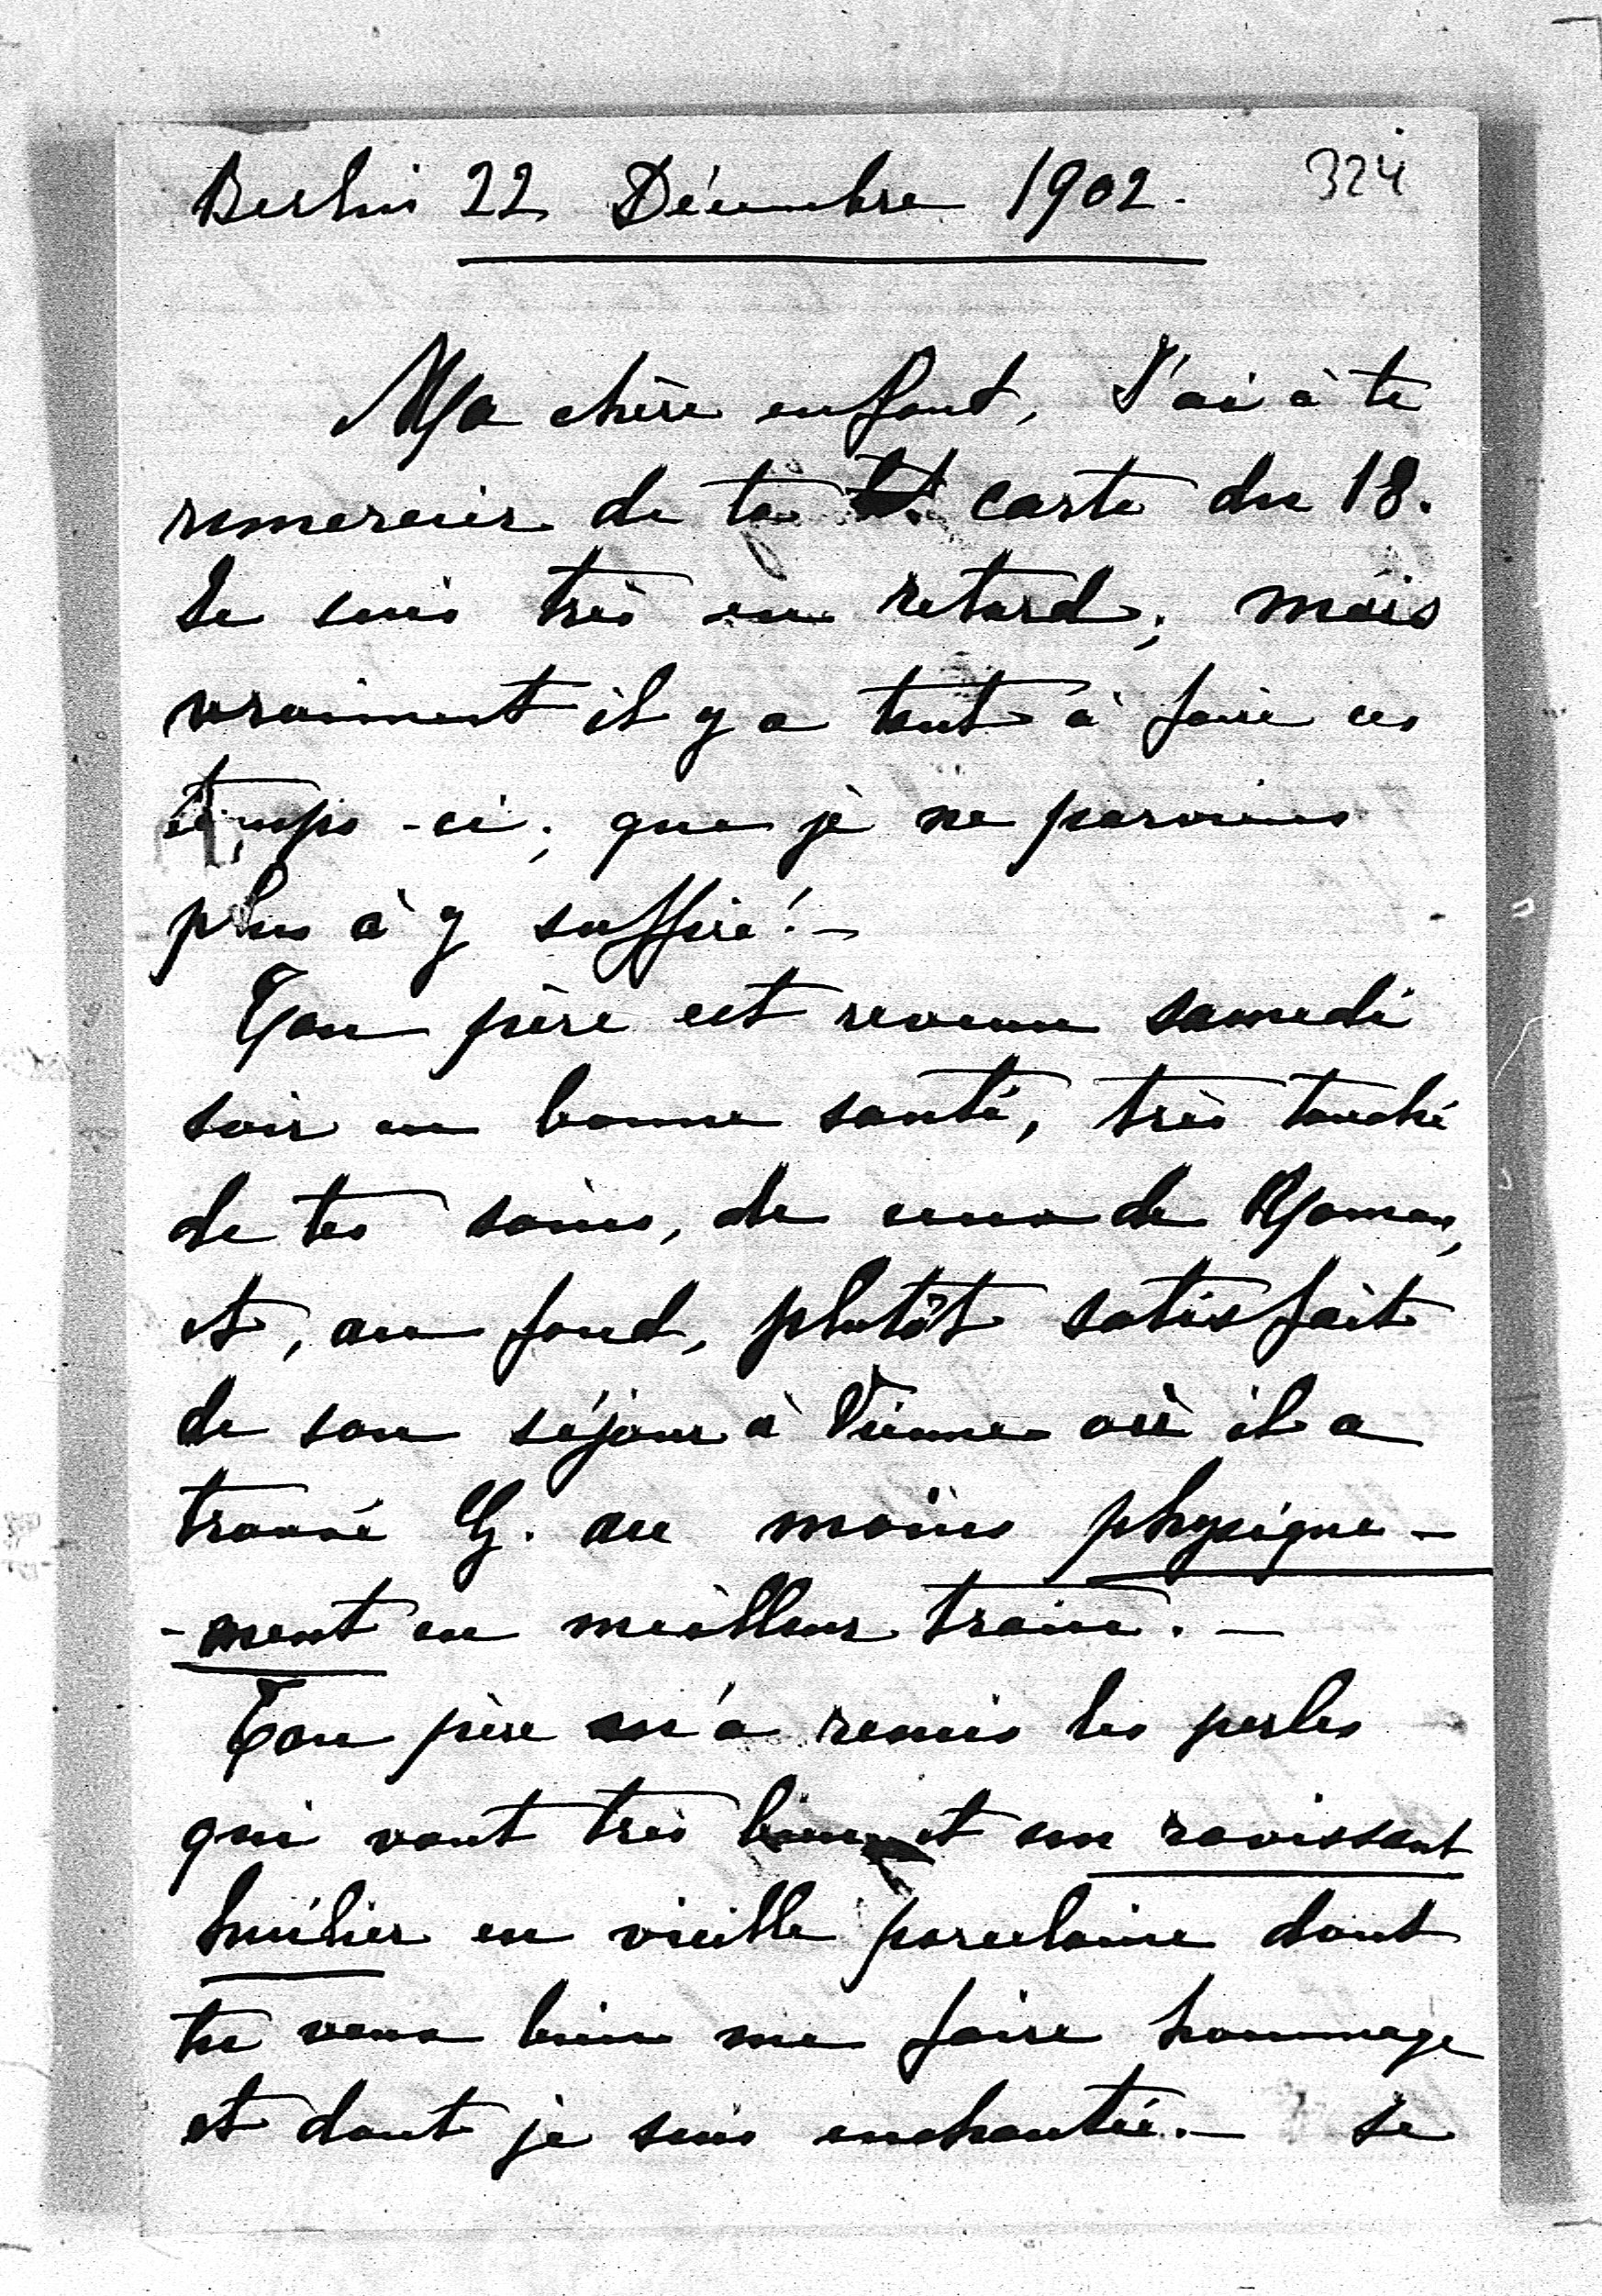 Berlin 22 Décembre 1902.
324
Ma chère enfant, J'ai à te
remercier de ta carte du 18.
Je suis très en retard; mais
vraiment il y a tant à faire ces
temps-ci; que je ne parviens
plus à y suffire! —
Ton père est revenu samedi
soir en bonne santé, très touché
de tes soins, de ceux de Maman,
et, au fond, plutôt satisfait
de son séjour à Vienne où il a
trouvé G. au moins physique-
-ment en meilleur train. —
Ton père m'a remis les perles
qui vont très bien et un ravissant
huilier en vieille porcelaine dont
tu veux bien me faire hommage
et dont je suis enchantée. — Je